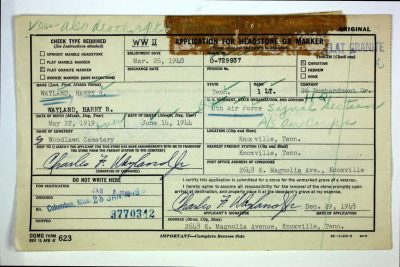 WW II
APPLICATION FOR HEADSTONE OR MARKER
ORIGINAL
CHECK TYPE REQUIRED
(See Instructions attached)
UPRIGHT MARBLE HEADSTONE
FLAT MARBLE MARKER
FLAT GRANITE MARKER
BRONZE MARKER
ENLISTMENT DATE
Mar. 26, 1940
DISCHARGE DATE
SERIAL No.
O-729937
PENSION No.
FLAT GRANITE
EMBLEM
CHRISTIAN
HEBREW
NONE
NAME (Last, First, Middle Initial)
WAYLAND, HARRY R.
WAYLAND, HARRY R.
STATE
Tenn.
RANK
1 LT.
COMPANY
96 Bombardment Gr.
U.S. REGIMENT, STATE ORGANIZATION, AND
8th Air Force
DATE OF BIRTH (Month, Day, Year)
May 22, 1919
DATE OF DEATH (Month, Day, Year)
June 14, 1944
NAME OF CEMETERY
Woodlawn Cemetery
LOCATION (City and State)
Knoxville, Tenn.
SHIP TO (I CERTIFY THE APPLICANT FOR THIS STONE HAS MADE ARRANGEMENTS WITH ME TO TRANSPORT THE STONE FROM THE FREIGHT STATION TO THE CEMETERY)
NEAREST FREIGHT STATION (City and State)
Knoxville, Tenn.
Charles F. Wayland Jr
POST OFFICE ADDRESS OF CONSIGNEE
2643 E. Magnolia Ave., Knoxville
DO NOT WRITE HERE
I certify this application is submitted for a stone for the unmarked grave of a veteran.
I hereby agree to assume all responsibility for the removal of the stone promptly upon arrival at destination, and properly place it at the decedent's grave at my expense.
ORDERED
Columbus, Miss.
3770342
Charles F. Wayland Jr
Dec. 29, 1948
APPLICANT'S SIGNATURE
DATE
ADDRESS (Street, City, State)
2643 E. Magnolia Avenue, Knoxville, Tenn.
OQMG FORM 623
IMPORTANT—Complete Reverse Side